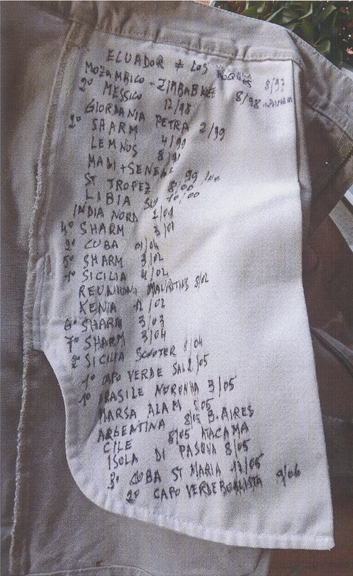 ECUADOR + LOS ROQUES 8/97
MOZAMBICO - ZIMBABWE 8/98
2° MESSICO 12/98
GIORDANIA PETRA 2/99
2° SHARM 4/99
LEMNOS 8/99
MALI + SENEGAL 99/00
ST TROPEZ 8/00
LIBIA 10/00
INDIA NORD 1/01
4° SHARM 3/01
2° CUBA 01/02
5° SHARM 3/02
1° SICILIA 4/02
REUNION MAURITIUS 8/02
KENIA 12/02
6° SHARM 3/03
7° SHARM 3/04
2° SICILIA SCOOTER 8/04
1° CAPO VERDE SAL 2/05
1° BRASILE NORONHA 3/05
MARSA ALAM 5/05
ARGENTINA 8/05 B. AIRES
CILE 8/05 ATACAMA
ISOLA DI PASQUA 8/05
3° CUBA ST MARIA 12/05
2° CAPO VERDE BOAVISTA 9/06